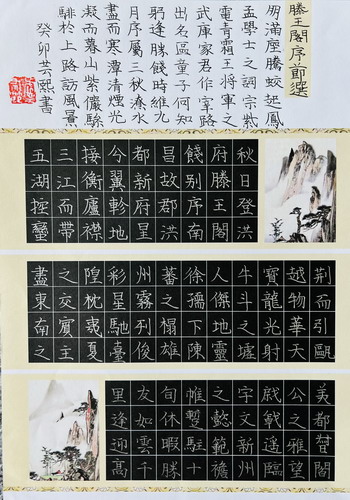 滕王閣序節選
朋滿座騰蛟起鳳
孟學士之詞宗紫
電青霜王將軍之
武庫家君作宰路
出名區童子何知
躬逢勝餞時維九
月序屬三秋潦水
盡而寒潭清煙光
凝而暮山紫儼驂
騑於上路訪風景
癸卯芸熙書
秋日登洪
府滕王閣
餞別序南
昌故郡洪
都新府星
分翼軫地
接衡廬襟
三江而帶
五湖控蠻
荊而引甌
越物華天
寶龍光射
牛斗之墟
人傑地靈
徐孺下陳
蕃之榻雄
州霧列俊
彩星馳臺
隍枕夷夏
之交賓主
盡東南之
美都督閻
公之雅望
棨戟遙臨
宇文新州
之懿範襜
帷暫駐十
旬休暇勝
友如雲千
里逢迎高